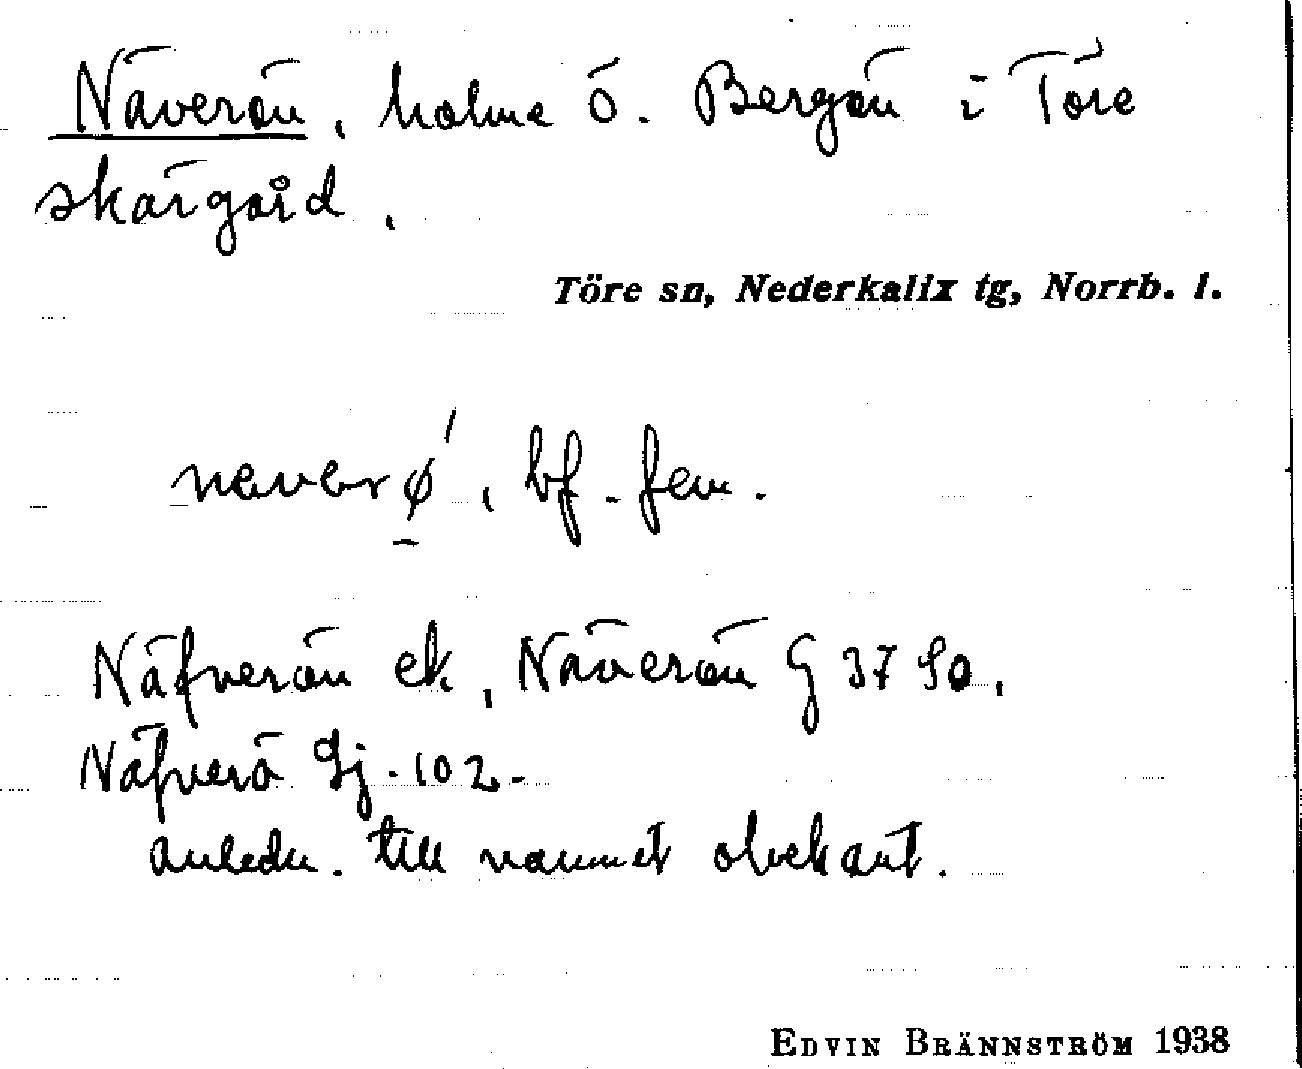 Näverön, holme ö. Bergön i Töre
skärgård.
Töre sn, Nederkalix tg, Norrb. l.
nevərø´, bf. fem.
Näfverön ek, Näverön G 37 So,
Näfverö Gj. 102.
anledn. till namnet obekant.
EDVIN BRÄNNSTRÖM 1938